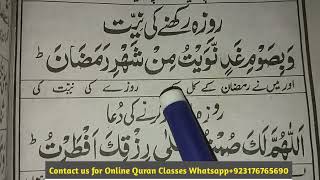 روزہ رکھنے کی نیّت
وَبِصَوْمِ غَدٍ نَّوَيْتُ مِنْ شَهْرِ رَمَضَانَ ط
اور میں نے رمضان کے کل روزے کی نیت کی
روزہ کی دُعا
اَللّٰهُمَّ لَكَ صُمْتُ رِزْقِكَ اَفْطَرْتُ ط
Contact us for Online Quran Classes Whatsapp+923176765690